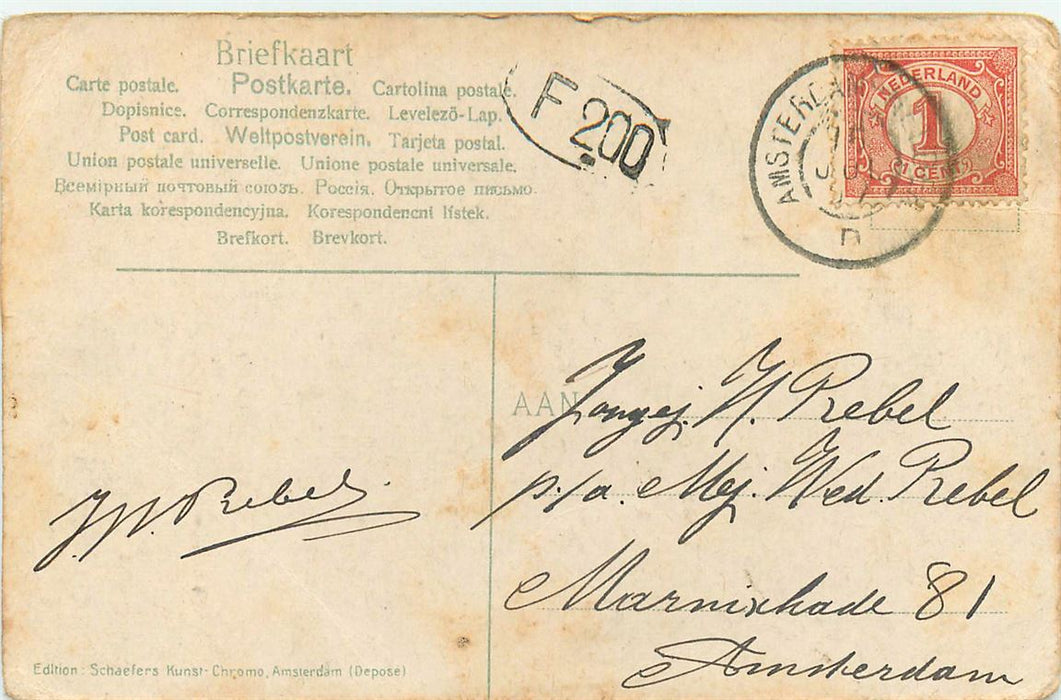 Briefkaart
Carte postale. Postkarte. Cartolina postale.
Dopisnice. Correspondenzkarte. Levelező-Lap.
Post card. Weltpostverein. Tarjeta postal.
Union postale universelle. Unione postale universale.
Всемірный почтовый союзъ. Россія. Открытое письмо.
Karta korespondencyjna. Korespondencni lístek.
Brefkort. Brevkort.
F 200
NEDERLAND
1
1 CENT
AMSTERDAM
JUL
D
AAN
Jongej. H. Rebel
p/a. Mej. Wed. Rebel
Marnixkade 81
Amsterdam
Rebel.
Edition: Schaefers Kunst-Chromo, Amsterdam (Deposé)